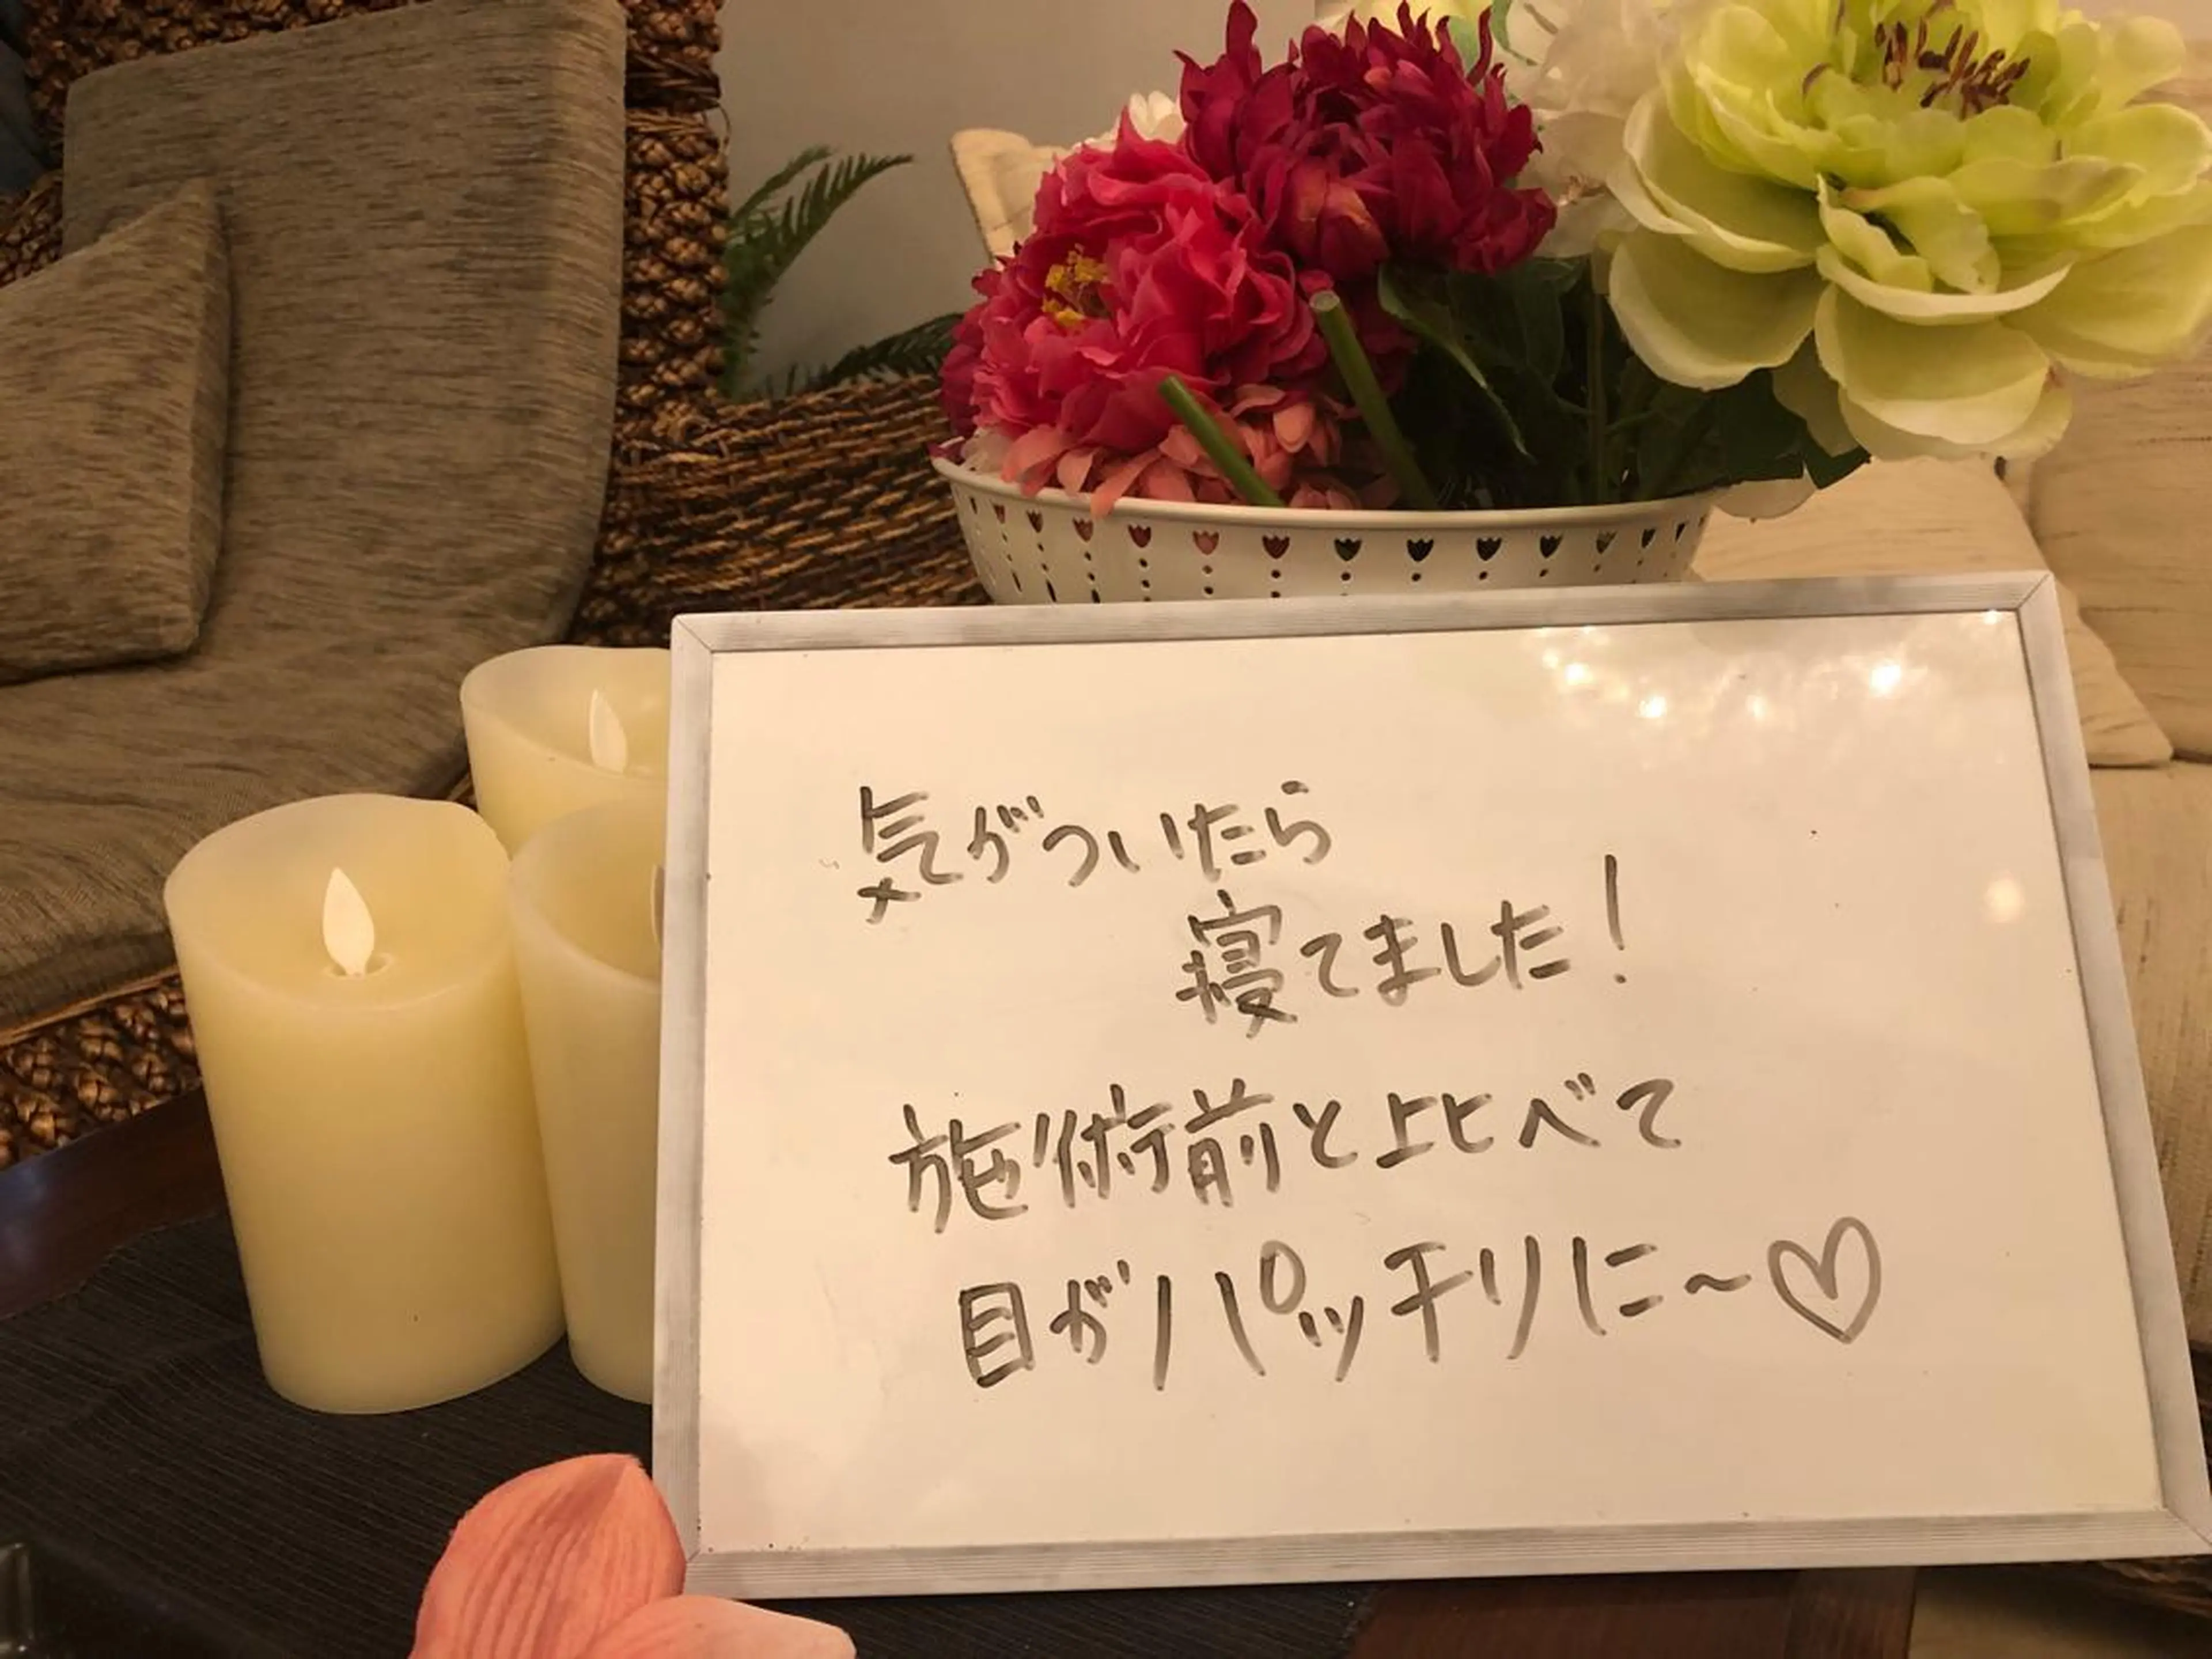 気がついたら
寝てました!
施術前と比べて
目がパッチリに~♡